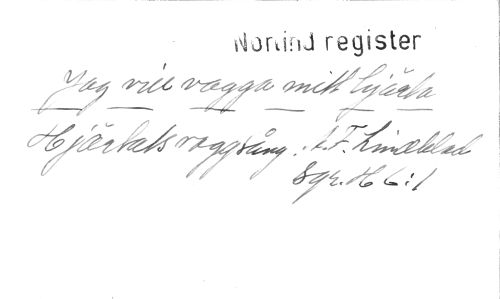 Norlind register
Jag vill vagga mitt hjärta
Hjärtats vaggsång. A. F. Lindblad
Sgr. H 6:1